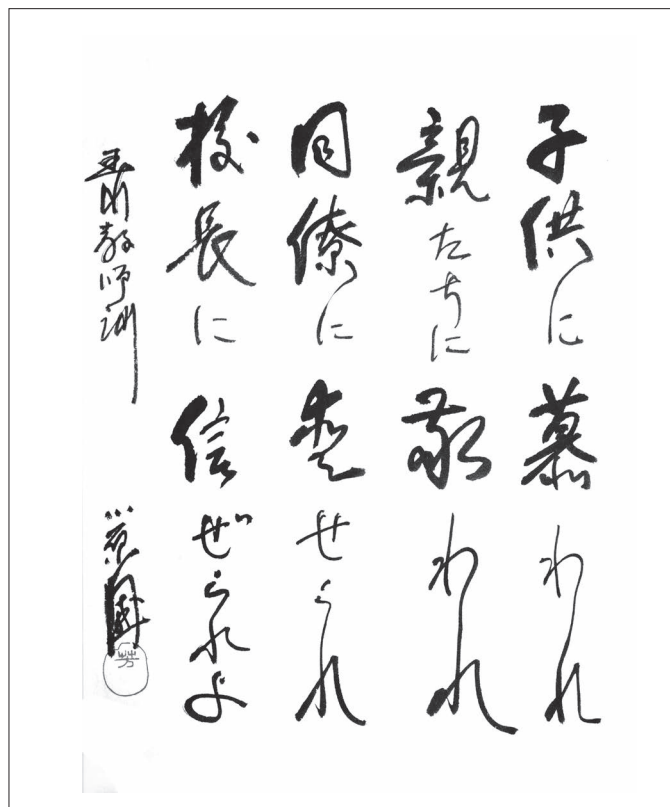 子供に慕われ
親たちに敬われ
同僚に愛せられ
校長に信ぜられよ
玉川教師訓
小原國芳